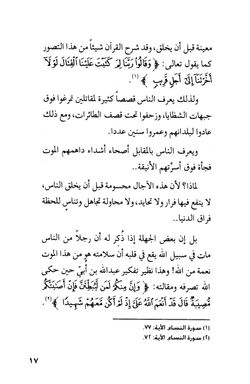 معينة قبل أن يخلق، وقد شرح القرآن شيئاً من هذا التصور
كما يقول تعالى: ﴿وَقَالُوا رَبَّنَا لِمَ كَتَبْتَ عَلَيْنَا الْقِتَالَ لَوْلَا
أَخَّرْتَنَا إِلَى أَجَلٍ قَرِيبٍ﴾(١).
ولذلك يعرف الناس قصصاً كثيرة لمقاتلين تمرغوا فوق
جبهات الشظايا، وزحفوا تحت قصف الطائرات، ومع ذلك
عادوا لبلدانهم وعمروا سنين عددا..
ويعرف الناس بالمقابل أصحاء أشداء داهمهم الموت
فجأة فوق أسرّتهم الأنيقة..
لماذا؟ لأن هذه الآجال محسومة قبل أن يخلق الناس،
لا ينفع فيها فرار ولا تحايد، ولا محاولة تجاهل وتناس للحظة
فراق الدنيا..
بل إن بعض الجهلة إذا ذُكر له أن رجلاً من الناس
مات في سبيل الله يقع في قلبه أن سلامته هو من هذا الموت
نعمة من الله! وهذا نظير تفكير عبدالله بن أبي حين حكى
الله تصرفه ومقالته: ﴿وَإِنَّ مِنكُمْ لَمَن لَّيُبَطِّئَنَّ فَإِنْ أَصَابَتْكُم
مُّصِيبَةٌ قَالَ قَدْ أَنْعَمَ اللَّهُ عَلَيَّ إِذْ لَمْ أَكُن مَّعَهُمْ شَهِيدًا﴾(٢).
(١) سورة النساء، الآية: ٧٧.
(٢) سورة النساء، الآية: ٧٢.
١٧